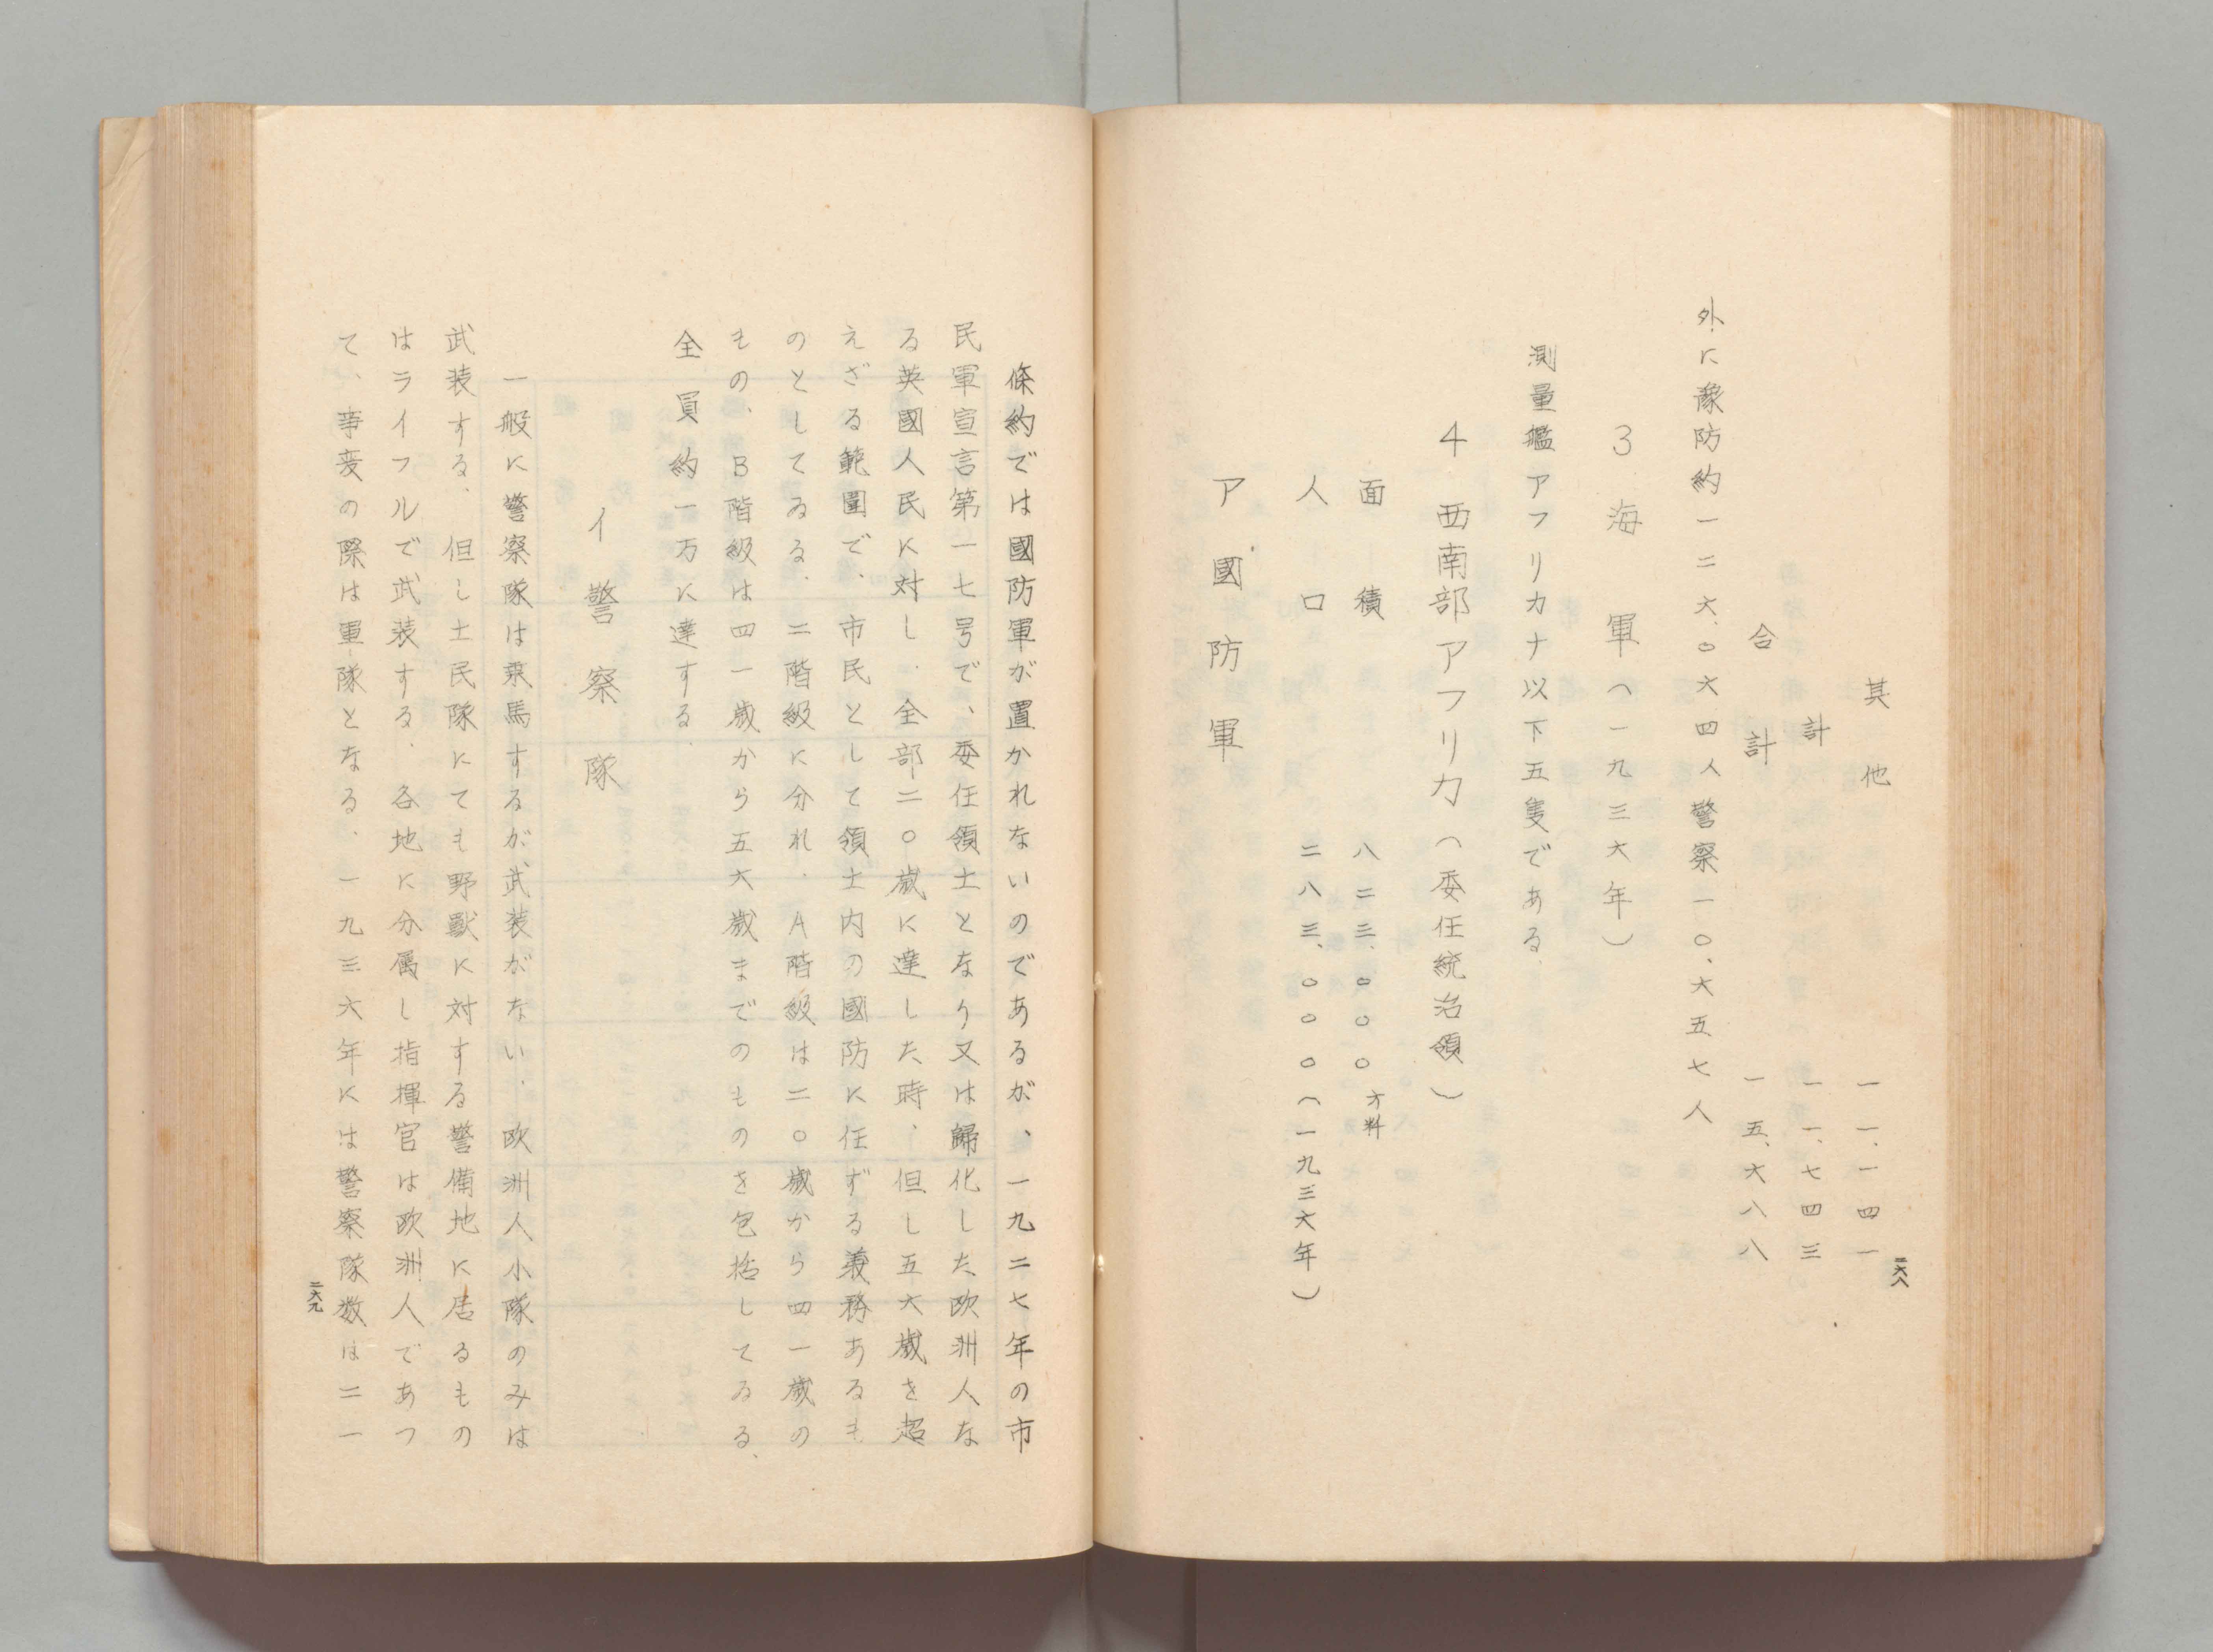 其他 一一、一四一
計 一一、七四三
合計 一五、六八八
外に豫防約一二六、〇六四人警察一〇、六五七人
3 海軍（一九三六年）
測量艦アフリカナ以下五隻である、
4 西南部アフリカ（委任統治領）
面積 八二三、〇〇〇方粁
人口 二八三、〇〇〇（一九三六年）
ア國防軍
二六八
條約では國防軍が置かれないのであるが、一九二七年の市
民軍宣言第一七号で、委任領土となり又は歸化した欧洲人な
る英國人民に対し、全部二〇歳に達した時、但し五六歳を超
えざる範囲で、市民として領土内の國防に任ずる義務あるも
のとしてゐる、二階級に分れ、A階級は二〇歳から四一歳の
もの、B階級は四一歳から五六歳までのものを包括してゐる、
全員約一万に達する、
イ警察隊
一般に警察隊は乗馬するが武装がない、欧洲人小隊のみは
武装する、但し土民隊にても野獸に対する警備地に居るもの
はライフルで武装する、各地に分属し指揮官は欧洲人であつ
て、事変の際は軍隊となる、一九三六年には警察隊数は二一
二六九